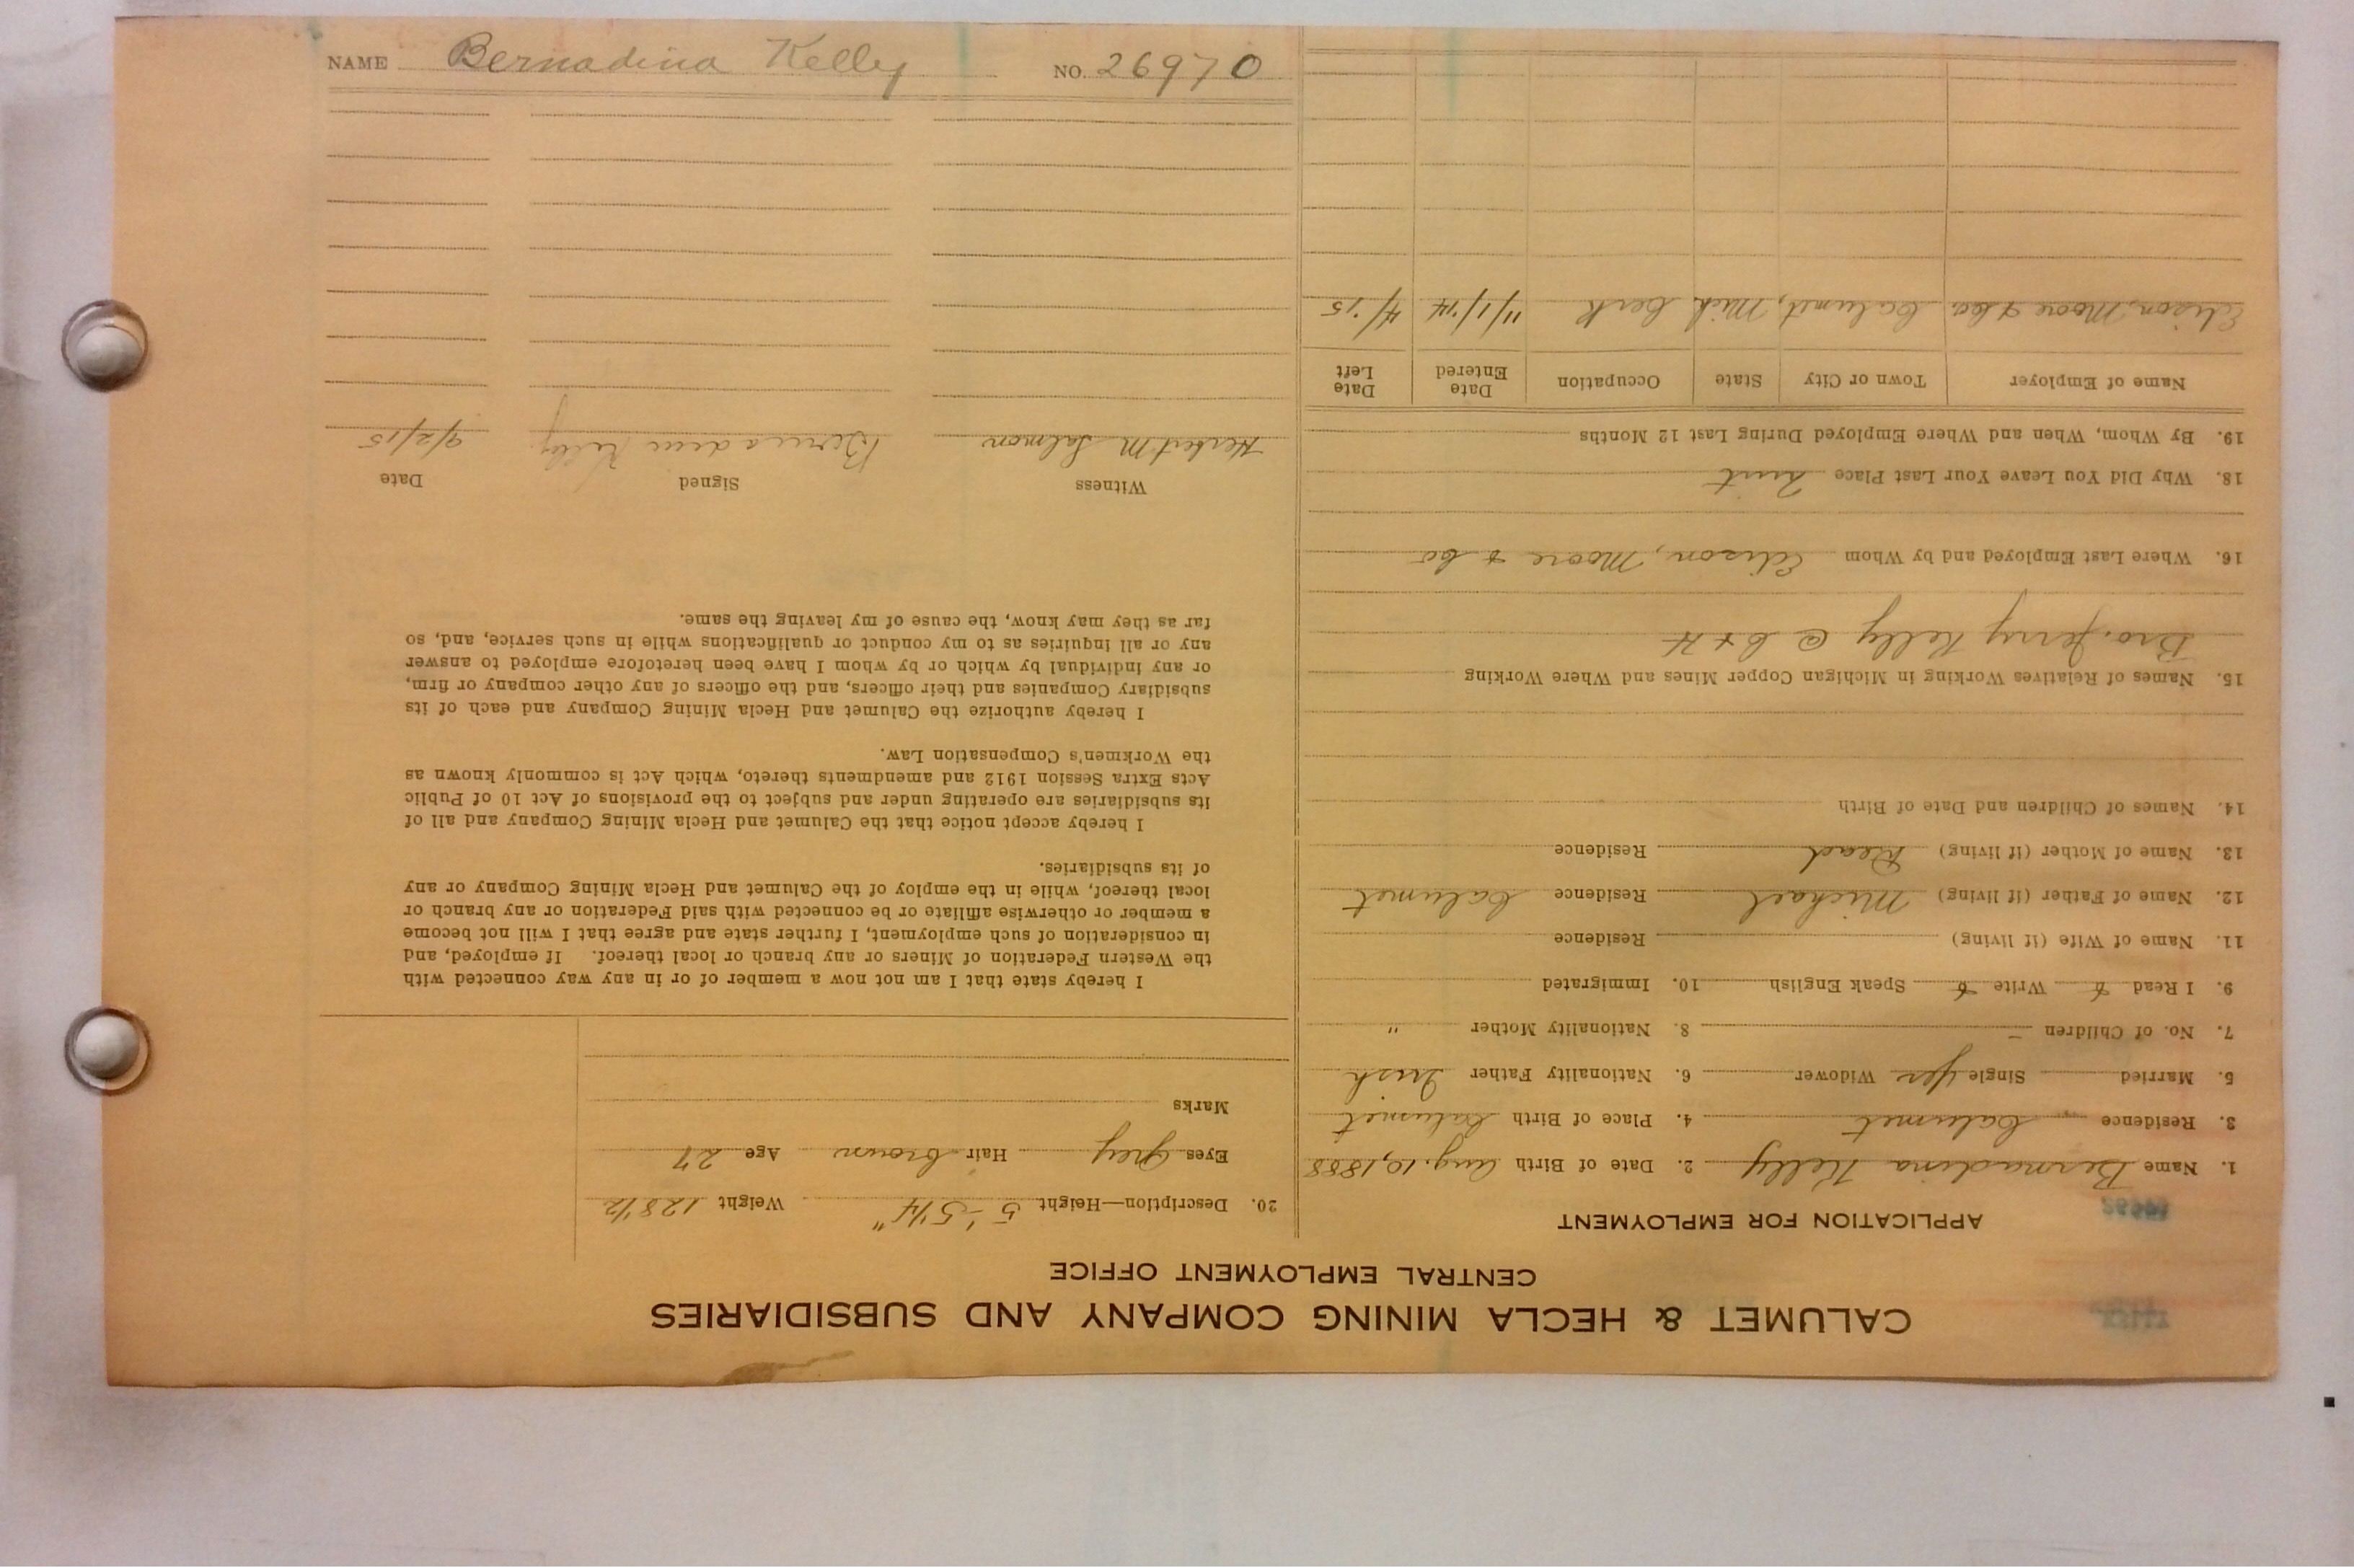 NAME Bernadina Kelley NO. 26970
CALUMET & HECLA MINING COMPANY AND SUBSIDIARIES
CENTRAL EMPLOYMENT OFFICE
APPLICATION FOR EMPLOYMENT
1. Name Bernadina Kelly 2. Date of Birth Aug. 10, 1888
3. Residence Calumet 4. Place of Birth Calumet
5. Married Single Yes Widower 6. Nationality Father Irish
7. No. of Children – 8. Nationality Mother "
9. I Read Write Speak English 10. Immigrated
11. Name of Wife (if living) Residence
12. Name of Father (if living) Michael Residence Calumet
13. Name of Mother (if living) Dead Residence
14. Names of Children and Date of Birth
15. Names of Relatives Working in Michigan Copper Mines and Where Working
Bro. Jerry Kelly @ C + H
16. Where Last Employed and by Whom Edison, Moore & Co
18. Why Did You Leave Your Last Place Quit
19. By Whom, When and Where Employed During Last 12 Months
Name of Employer Town or City State Occupation Date Entered Date Left
Edison, Moore & Co. Calumet, Mich Clerk 11/1/14 4/15
20. Description—Height 5'-5 1/4" Weight 128 1/2
Eyes Grey Hair brown Age 27
Marks
I hereby state that I am not now a member of or in any way connected with
the Western Federation of Miners or any branch or local thereof. If employed, and
in consideration of such employment, I further state and agree that I will not become
a member or otherwise affiliate or be connected with said Federation or any branch or
local thereof, while in the employ of the Calumet and Hecla Mining Company or any
of its subsidiaries.
I hereby accept notice that the Calumet and Hecla Mining Company and all of
its subsidiaries are operating under and subject to the provisions of Act 10 of Public
Acts Extra Session 1912 and amendments thereto, which Act is commonly known as
the Workmen's Compensation Law.
I hereby authorize the Calumet and Hecla Mining Company and each of its
subsidiary Companies and their officers, and the officers of any other company or firm,
or any individual by which or by whom I have been heretofore employed to answer
any or all inquiries as to my conduct or qualifications while in such service, and, so
far as they may know, the cause of my leaving the same.
Witness Signed Date
Herbert M Salmon Bernadine Kelly 9/2/15